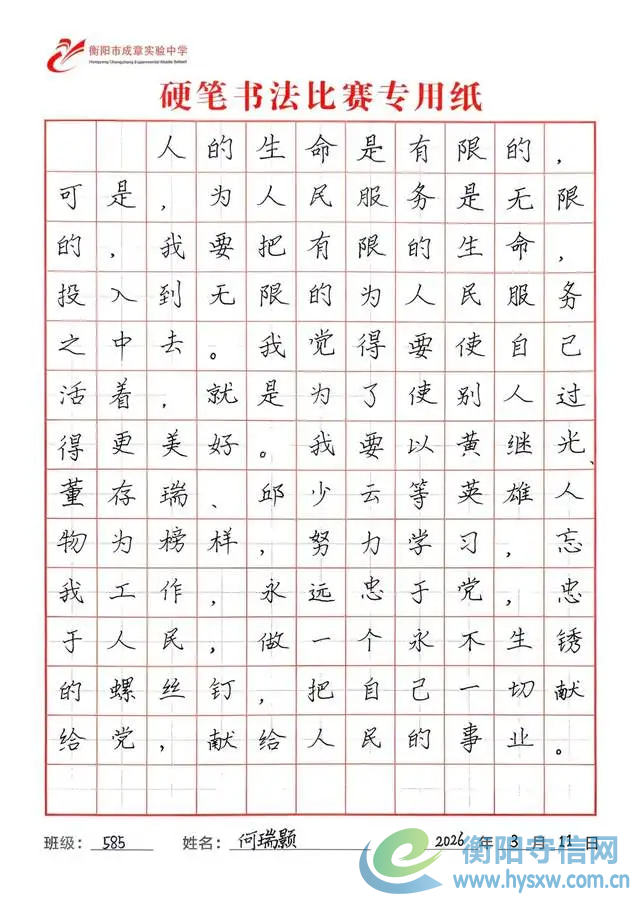 衡阳市成章实验中学
硬笔书法比赛专用纸
人的生命是有限的，
可是，为人民服务是无限
的，我要把有限的生命，
投入到无限的为人民服务
之中去。我觉得要使自己
活着，就是为了使别人过
得更美好。我要以黄继光、
董存瑞、邱少云等英雄人
物为榜样，努力学习，忘
我工作，永远忠于党，忠
于人民，做一个永不生锈
的螺丝钉，把自己一切献
给党，献给人民的事业。
班级：585 姓名：何瑞颢 2026年3月11日
衡阳守信网
www.hysxw.com.cn